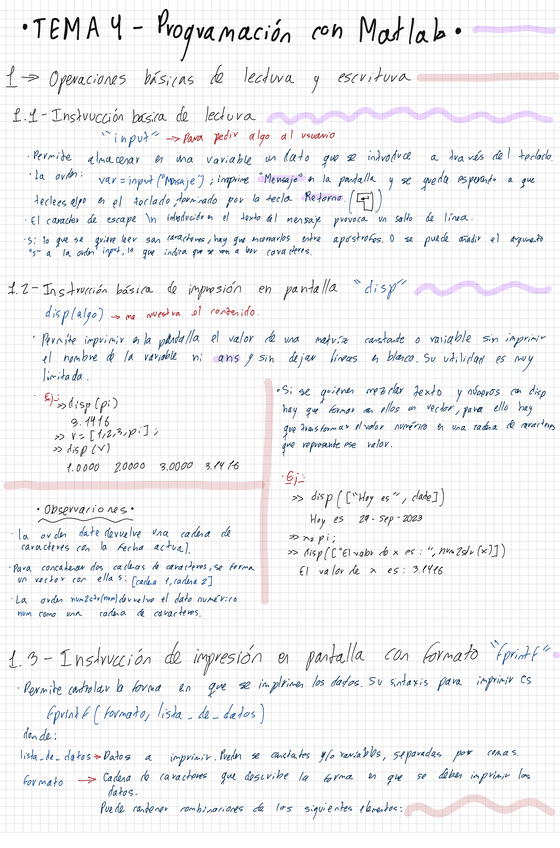 • TEMA 4 - Programación con Matlab •
1 → Operaciones básicas de lectura y escritura
1.1 - Instrucción básica de lectura
"input" → Para pedir algo al usuario
· Permite almacenar en una variable un dato que se introduce a través del teclado.
· La orden: var = input("Mensaje"); imprime "Mensaje" en la pantalla y se queda esperando a que
teclees algo en el teclado, terminado por la tecla Retorno. (↵)
· El caracter de escape \n introducido en el texto del mensaje provoca un salto de línea.
· Si lo que se quiere leer son caracteres, hay que encerrarlos entre apóstrofes. O se puede añadir el argumento
"s" a la orden input, lo que indica que se van a leer caracteres.
1.2 - Instrucción básica de impresión en pantalla "disp"
disp(algo) → me muestra el contenido.
· Permite imprimir en la pantalla el valor de una matriz constante o variable sin imprimir
el nombre de la variable ni ans y sin dejar líneas en blanco. Su utilidad es muy
limitada.
· Ej:
>> disp(pi)
3.1416
>> v = [1,2,3,pi];
>> disp(v)
1.0000 2.0000 3.0000 3.1416
· Si se quieren mezclar texto y números con disp
hay que formar con ellos un vector, para ello hay
que transformar el valor numérico en una cadena de caracteres
que represente ese valor.
· Ej:
>> disp(["Hoy es", date])
Hoy es 29-Sep-2023
>> x=pi;
>> disp(["El valor de x es: ", num2str(x)])
El valor de x es: 3.1416
• Observaciones •
· La orden date devuelve una cadena de
caracteres con la fecha actual.
· Para concatenar dos cadenas de caracteres, se forma
un vector con ellas: [cadena 1, cadena 2]
· La orden num2str(num) devuelve el dato numérico
num como una cadena de caracteres.
1.3 - Instrucción de impresión en pantalla con formato "fprintf"
· Permite controlar la forma en que se imprimen los datos. Su sintaxis para imprimir es
fprintf(formato, lista_de_datos)
donde:
lista_de_datos → Datos a imprimir. Pueden ser constantes y/o variables, separadas por comas.
formato → Cadena de caracteres que describe la forma en que se deben imprimir los
datos.
Puede contener combinaciones de los siguientes elementos: